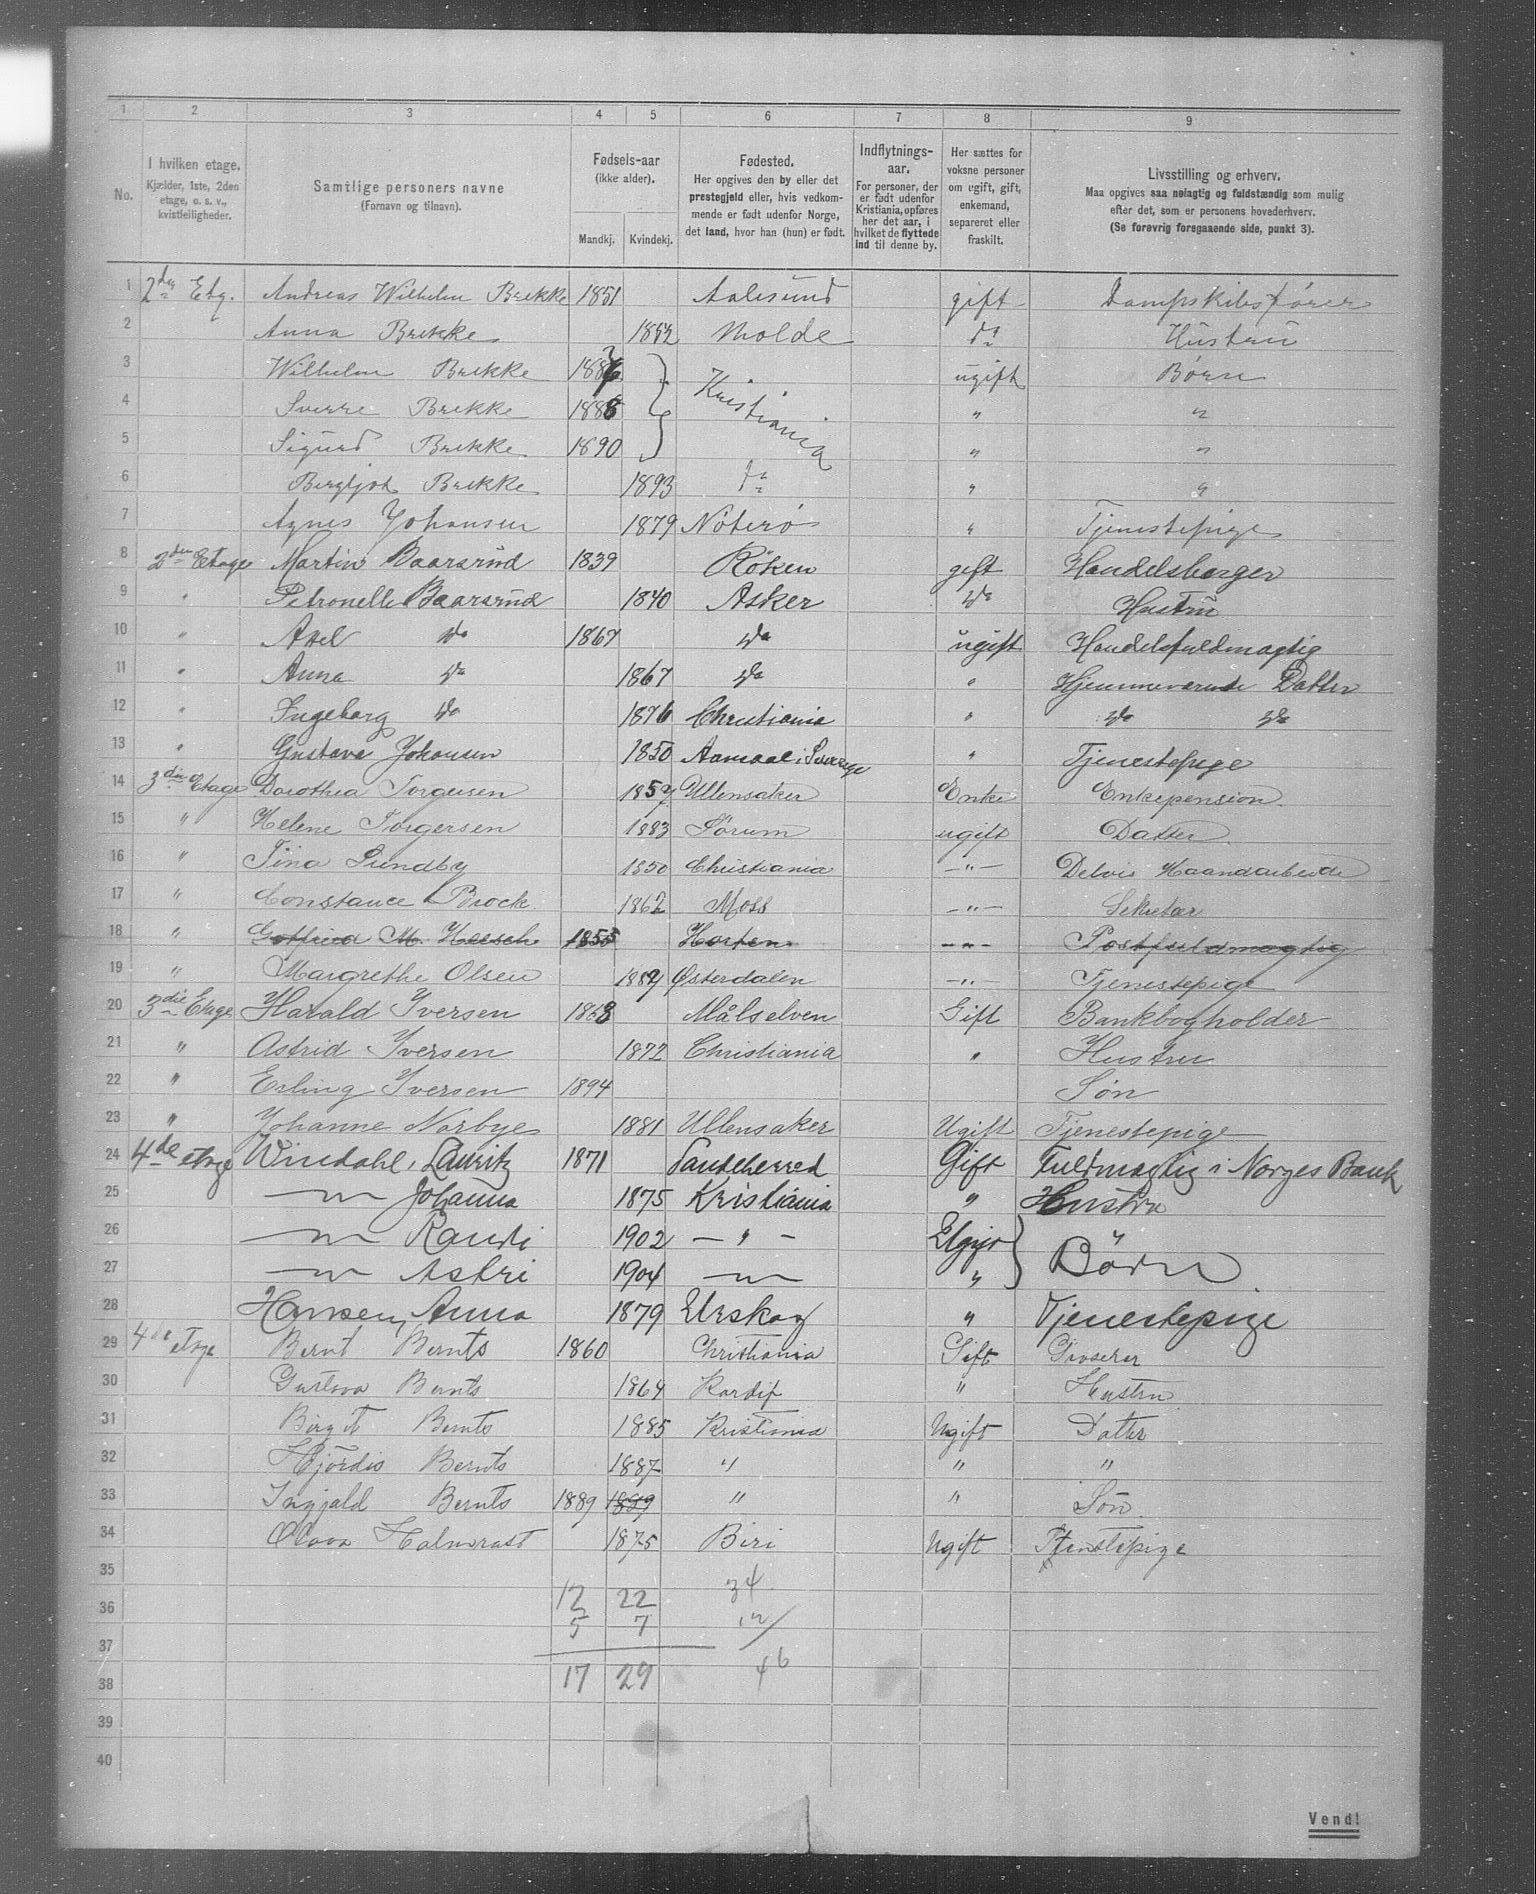 1 2 3 4 5 6 7 8 9
No. I hvilken etage. Kjælder, 1ste, 2den etage, o. s. v., kvistleiligheder. Samtlige personers navne (Fornavn og tilnavn). Fødsels-aar (ikke alder). Mandkj. Kvindekj. Fødested. Her opgives den by eller det prestegjeld eller, hvis vedkommende er født udenfor Norge, det land, hvor han (hun) er født. Indflytningsaar. For personer, der er født udenfor Kristiania, opføres her det aar, i hvilket de flyttede ind til denne by. Her sættes for voksne personer om ugift, gift, enkemand, separeret eller fraskilt. Livsstilling og erhverv. Maa opgives saa nøiagtig og fuldstændig som mulig efter det, som er personens hovederhverv. (Se forøvrig foregaaende side, punkt 3).
1 2den Etg. Andreas Wilhelm Brekke 1851 Aalesund gift Dampskibsfører
2 Anna Brekke 1852 Molde do Hustru
3 Wilhelm Brekke Kristiania ugift Børn
4 Sverre Brekke 1888 " "
5 Sigurd Brekke 1890 " "
6 Bergljot Brekke 1893 do " "
7 Agnes Johansen 1879 Nöterö " Tjenestepige
8 2den Etage Martin Baarsrud 1839 Röken gift Handelsborger
9 " Petronelle Baarsrud 1840 Asker do Hustru
10 " Axel do 1867 do ugift Handelsfuldmægtig
11 " Anna do 1867 do " Hjemmeværende Datter
12 " Ingeborg do 1876 Christiania " do do
13 " Gustava Johansen 1850 Aamaal i Sverige " Tjenestepige
14 3die Etage Dorothea Torgersen 1857 Ullensaker Enke Enkepension
15 " Helene Torgersen 1883 Sörum ugift Datter
16 " Tina Sundby 1850 Christiania -"- Delvis Haandarbeide
17 " Constance Brock 1862 Moss -"- Sekretær
18 " Gotfried M. Heesch 1855 Horten -"- Postfuldmægtig
19 " Margrethe Olsen Østerdalen -"- Tjenestepige
20 3die Etage Harald Iversen 1868 Målselven Gift Bankbogholder
21 " Astrid Iversen 1872 Christiania " Hustru
22 " Erling Iversen 1894 Søn
23 " Johanne Norbye 1881 Ullensaker Ugift Tjenestepige
24 4de etage Windahl, Lauritz 1871 Sandeherred Gift Fuldmægtig i Norges Bank
25 -"- Johanna 1875 Kristiania " Hustru
26 -"- Randi 1902 - " - Ugift Børn
27 -"- Astri 1904 -"- "
28 Hansen, Anna 1879 Urskog " Tjenestepige
29 4de etage Bernt Bernts 1860 Christiania Gift Grosserer
30 Gustava Bernts 1864 Kardif " Hustru
31 Birgit Bernts 1885 Kristiania Ugift Datter
32 Hjördis Bernts 1887 " " "
33 Ingjald Bernts 1889 1889 " " Sön
34 Olava Holmrast 1875 Biri Ugift Tjenstepige
35 12 22 34
36 5 7 12
37
38 17 29 46
39
40
Vend!